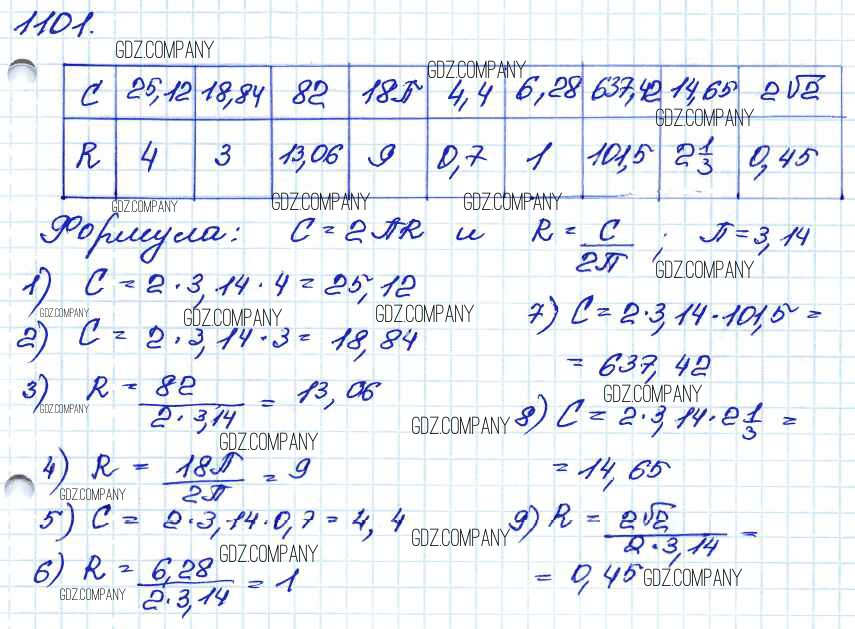 1101.
GDZ.COMPANY
GDZ.COMPANY
C 25,12 18,84 82 18π 4,4 6,28 637,42 14,65 2√2
GDZ.COMPANY
R 4 3 13,06 9 0,7 1 101,5 2 1/3 0,45
GDZ.COMPANY GDZ.COMPANY GDZ.COMPANY
Формула: C = 2πR и R = C/2π ; π = 3,14
GDZ.COMPANY
1) C = 2·3,14·4 = 25,12
GDZ.COMPANY GDZ.COMPANY GDZ.COMPANY
2) C = 2·3,14·3 = 18,84
3) R = 82/2·3,14 = 13,06
GDZ.COMPANY GDZ.COMPANY
4) R = 18π/2π = 9
GDZ.COMPANY
5) C = 2·3,14·0,7 = 4,4
GDZ.COMPANY
6) R = 6,28/2·3,14 = 1
GDZ.COMPANY
7) C = 2·3,14·101,5 =
= 637,42
GDZ.COMPANY
GDZ.COMPANY
8) C = 2·3,14·2 1/3 =
= 14,65
GDZ.COMPANY
9) R = 2√2/2·3,14 =
= 0,45
GDZ.COMPANY